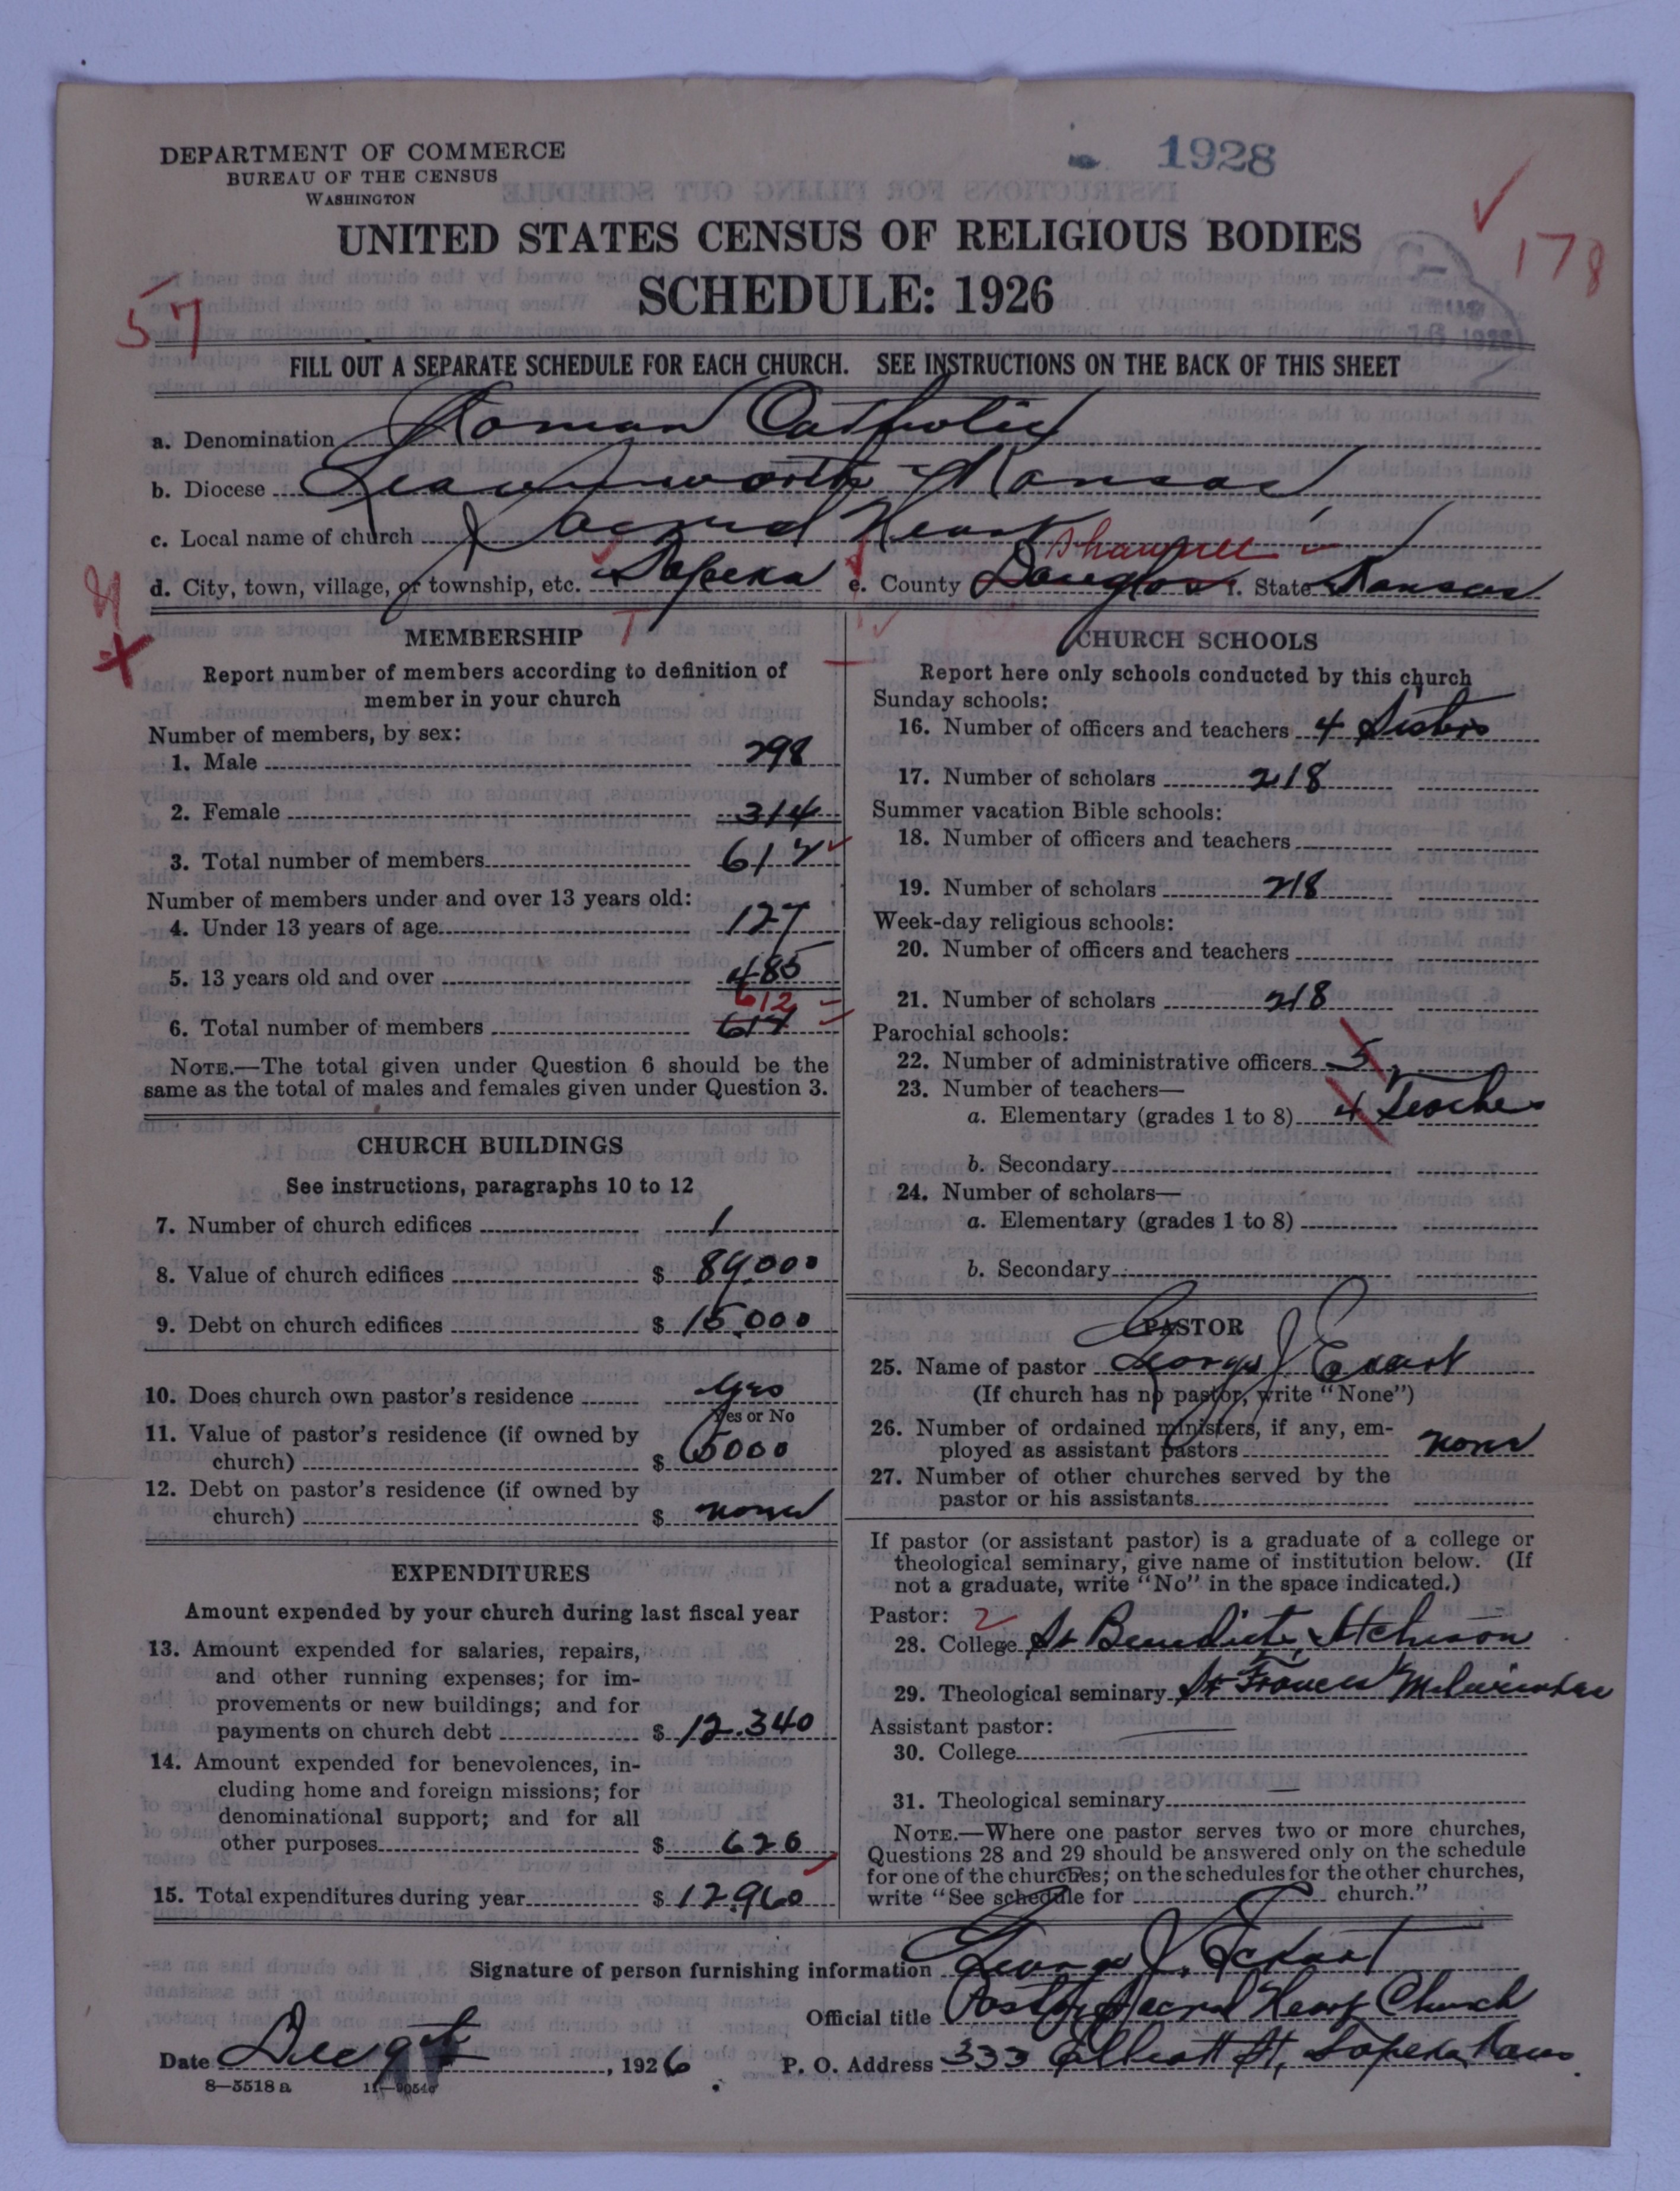 DEPARTMENT OF COMMERCE
BUREAU OF THE CENSUS
WASHINGTON
1928
UNITED STATES CENSUS OF RELIGIOUS BODIES
178
SCHEDULE: 1926
57
FILL OUT A SEPARATE SCHEDULE FOR EACH CHURCH. SEE INSTRUCTIONS ON THE BACK OF THIS SHEET
a. Denomination Roman Catholic
b. Diocese Leavenworth Kansas
c. Local name of church Sacred Heart
Shawnee
d. City, town, village, or township, etc. Topeka e. County Douglas f. State Kansas
MEMBERSHIP
Report number of members according to definition of
member in your church
Number of members, by sex:
1. Male 298
2. Female 314
3. Total number of members 612
Number of members under and over 13 years old:
4. Under 13 years of age 127
5. 13 years old and over 485
612
6. Total number of members 617
NOTE.—The total given under Question 6 should be the
same as the total of males and females given under Question 3.
CHURCH BUILDINGS
See instructions, paragraphs 10 to 12
7. Number of church edifices 1
8. Value of church edifices $ 89,000
9. Debt on church edifices $ 15,000
10. Does church own pastor's residence Yes
Yes or No
11. Value of pastor's residence (if owned by
church) $ 6000
12. Debt on pastor's residence (if owned by
church) $ none
EXPENDITURES
Amount expended by your church during last fiscal year
13. Amount expended for salaries, repairs,
and other running expenses; for im-
provements or new buildings; and for
payments on church debt $ 12.340
14. Amount expended for benevolences, in-
cluding home and foreign missions; for
denominational support; and for all
other purposes $ 620
15. Total expenditures during year $ 12.960
CHURCH SCHOOLS
Report here only schools conducted by this church
Sunday schools:
16. Number of officers and teachers 4 Sisters
17. Number of scholars 218
Summer vacation Bible schools:
18. Number of officers and teachers
19. Number of scholars 218
Week-day religious schools:
20. Number of officers and teachers
21. Number of scholars 218
Parochial schools:
22. Number of administrative officers 5
23. Number of teachers—
a. Elementary (grades 1 to 8) 4 Teachers
b. Secondary
24. Number of scholars—
a. Elementary (grades 1 to 8)
b. Secondary
PASTOR
25. Name of pastor George J. Eckart
(If church has no pastor, write "None")
26. Number of ordained ministers, if any, em-
ployed as assistant pastors none
27. Number of other churches served by the
pastor or his assistants
If pastor (or assistant pastor) is a graduate of a college or
theological seminary, give name of institution below. (If
not a graduate, write "No" in the space indicated.)
Pastor: 2
28. College St Benedicts, Atchison
29. Theological seminary St Francis Milwaukee
Assistant pastor:
30. College
31. Theological seminary
NOTE.—Where one pastor serves two or more churches,
Questions 28 and 29 should be answered only on the schedule
for one of the churches; on the schedules for the other churches,
write "See schedule for church."
Signature of person furnishing information George J. Eckart
Official title Pastor Sacred Heart Church
Date Dec 9th, 1926 P. O. Address 333 Elliott St, Topeka Kans.
8—5518 a